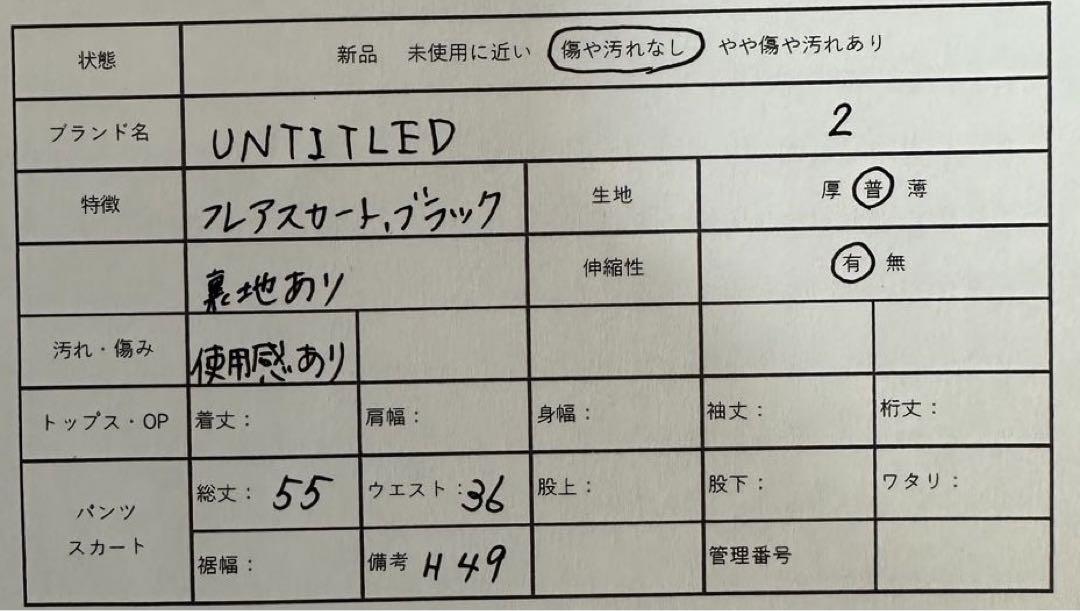 状態 新品 未使用に近い 傷や汚れなし やや傷や汚れあり
ブランド名 UNTITLED 2
特徴 フレアスカート、ブラック 生地 厚 普 薄
裏地あり 伸縮性 有 無
汚れ・傷み 使用感あり
トップス・OP 着丈： 肩幅： 身幅： 袖丈： 裄丈：
パンツ スカート
総丈： 55 ウエスト：36 股上： 股下： ワタリ：
裾幅： 備考 H 49 管理番号